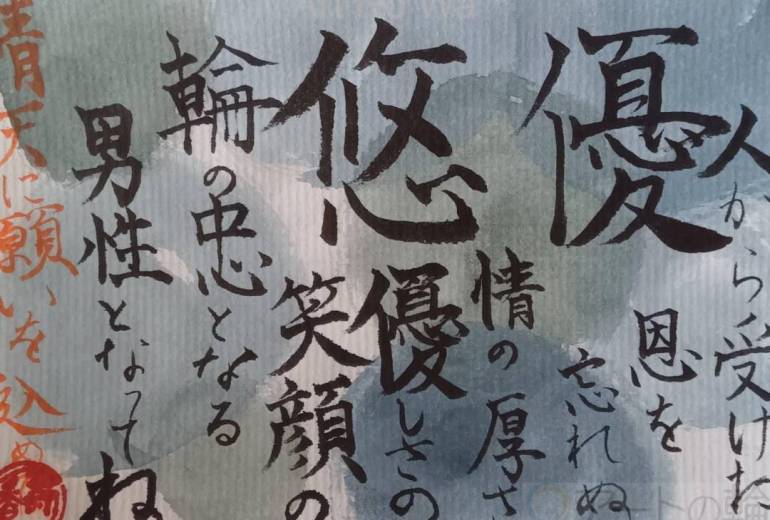 人から受けた
恩を
忘れぬ
優
情の厚さ
優しさの
悠
笑顔の
輪の中心となる
男性となってね
青天に願いを込め
ートの輪